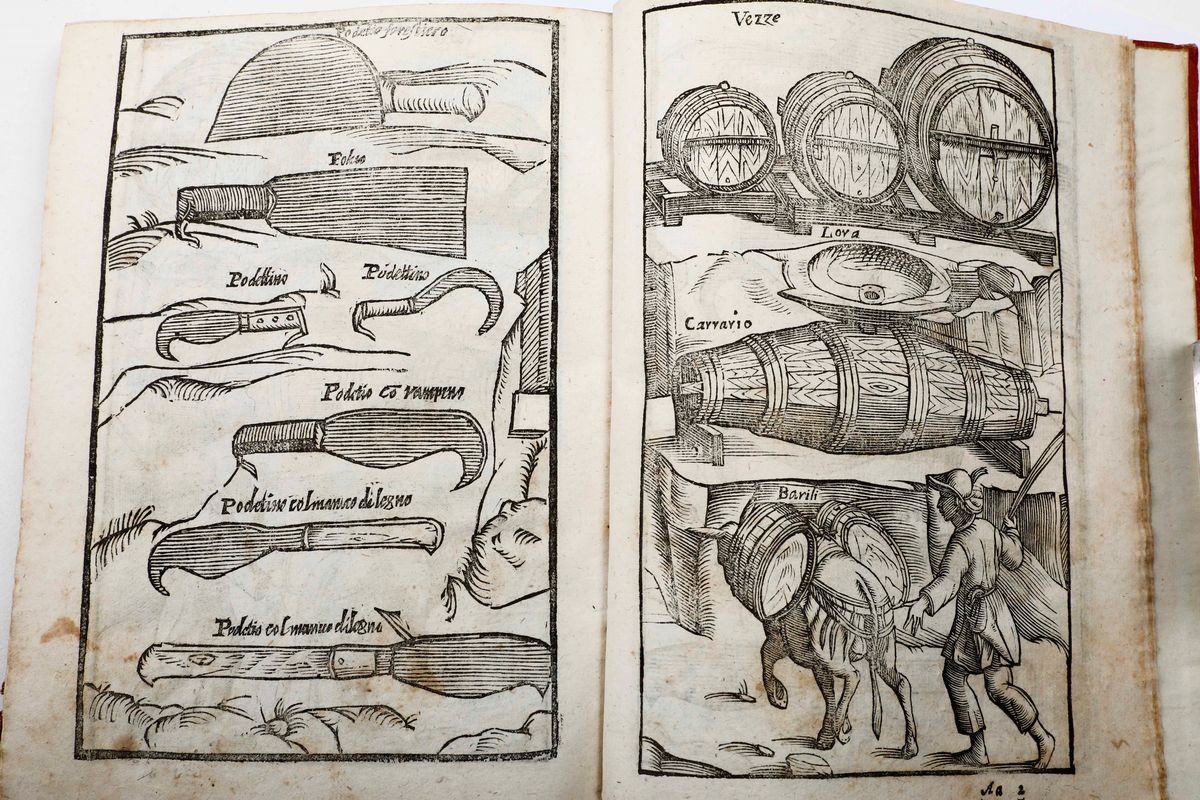 Podetto forestiero
Polso
Podettino
Podettino
Podetto cō rampino
Podetino col manico di legno
Podetio col manico di legno
Vezze
Lova
Carrario
Barili
Aa 2